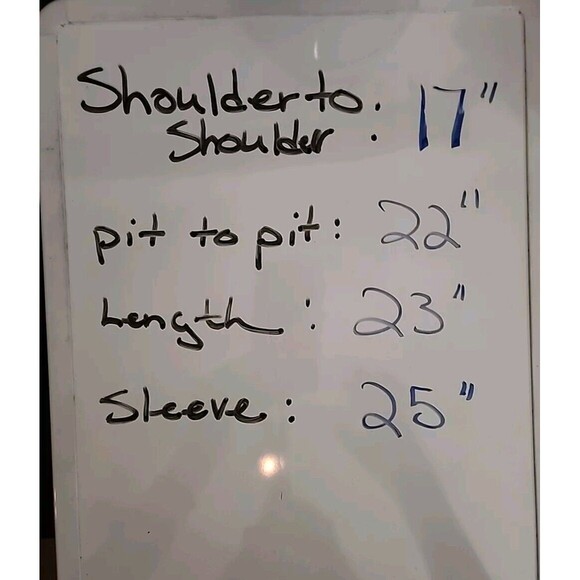 Shoulder to
Shoulder : 17"
pit to pit: 22"
Length : 23"
Sleeve : 25"